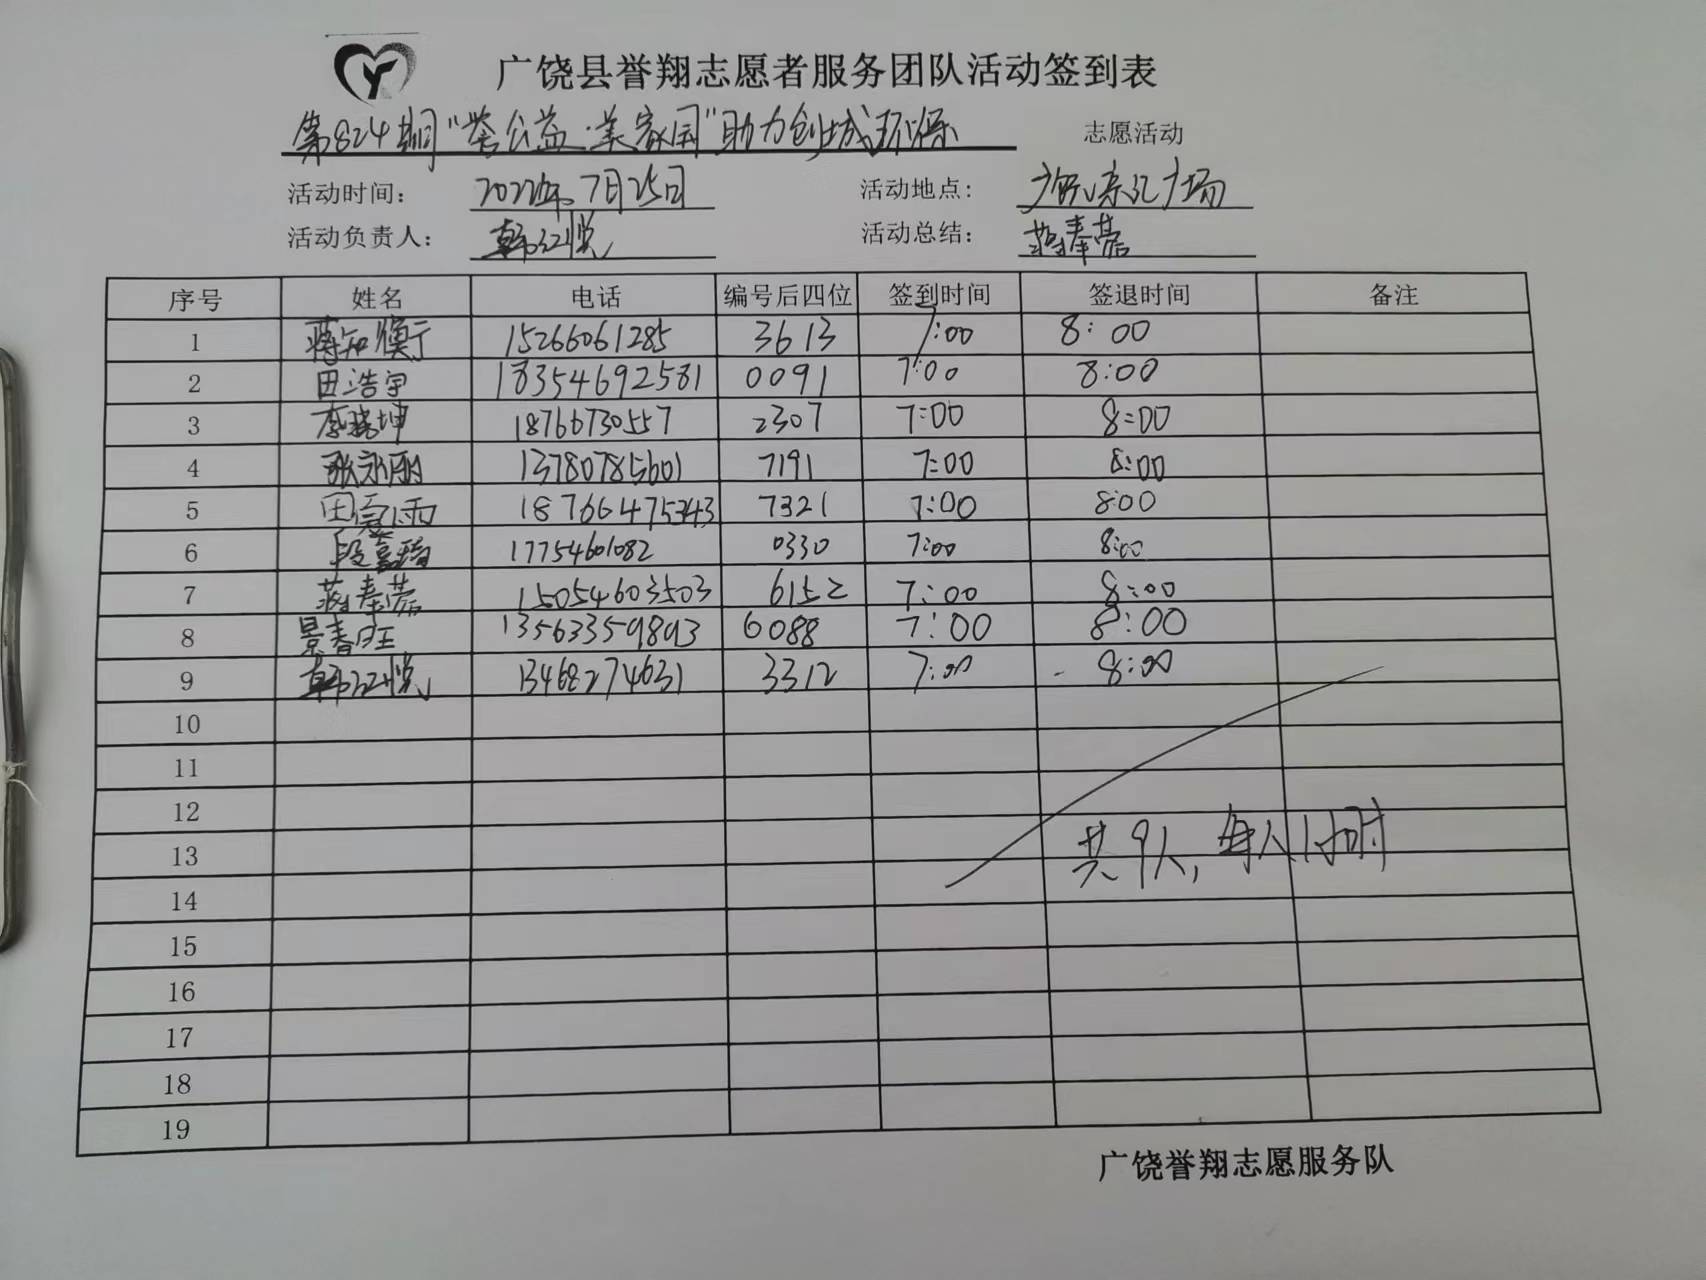 广饶县誉翔志愿者服务团队活动签到表
第824期"誉公益·美家园"助力创城环保 志愿活动
活动时间: 2022年7月25日 活动地点: 广饶乐汇广场
活动负责人: 韩江悦 活动总结: 蒋奉蕊
序号 姓名 电话 编号后四位 签到时间 签退时间 备注
1 蒋知衡 15266061285 3613 7:00 8:00
2 田浩宇 18354692581 0091 7:00 8:00
3 李瑞坤 18766730557 2307 7:00 8:00
4 张永丽 13780785601 7191 7:00 8:00
5 田雨 7321 7:00 8:00
6 段嘉琦 17754601082 0330 7:00 8:00
7 蒋奉蕊 15054603503 6152 7:00 8:00
8 景春旺 13563359893 6088 7:00 8:00
9 韩江悦 13468274631 3312 7:00 8:00
10
11
12
13 共9人,每人1小时
14
15
16
17
18
19
广饶誉翔志愿服务队